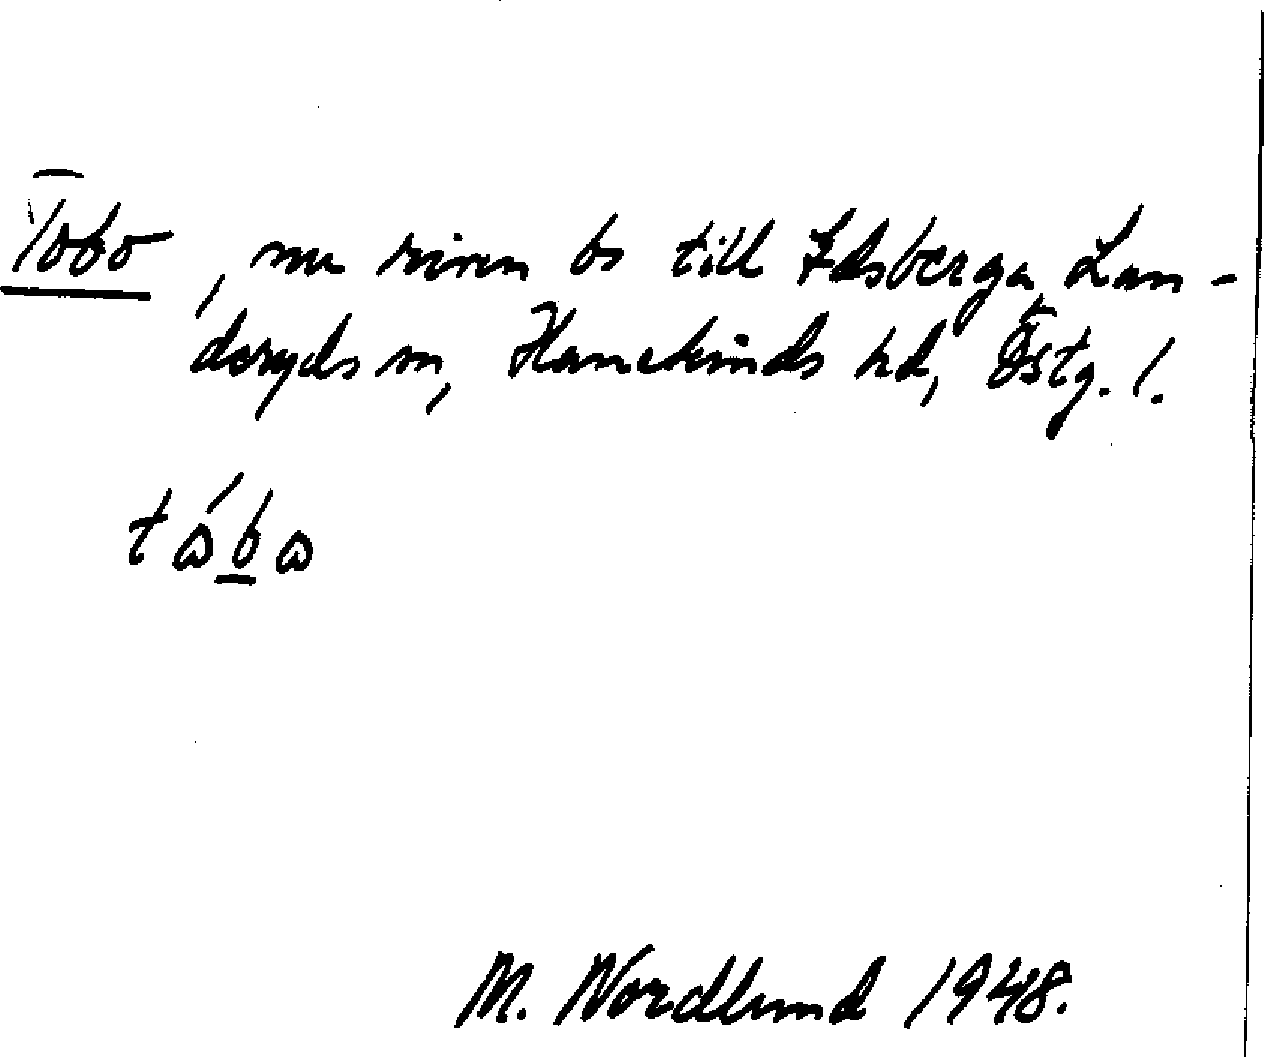 Tobo, nu riven bs till Edsberga, Lan-
deryds sn, Hanekinds hd, Östg. l.
tɷ́bɷ
M. Nordlund 1948.